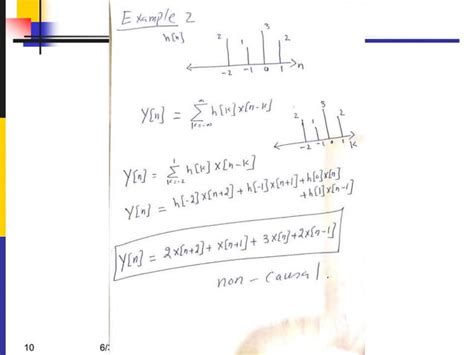 Example 2
h[n]
2 1 3 2
-2 -1 0 1 n
Y[n] = ∑ k=-∞ ∞ h[k] x[n-k]
2 1 3 2
-2 -1 0 1 k
Y[n] = ∑ k=-2 1 h[k] x[n-k]
Y[n] = h[-2] x[n+2] + h[-1] x[n+1] + h[0] x[n]
+ h[1] x[n-1]
Y[n] = 2x[n+2] + x[n+1] + 3x[n] + 2x[n-1]
non-causal.
10 6/3